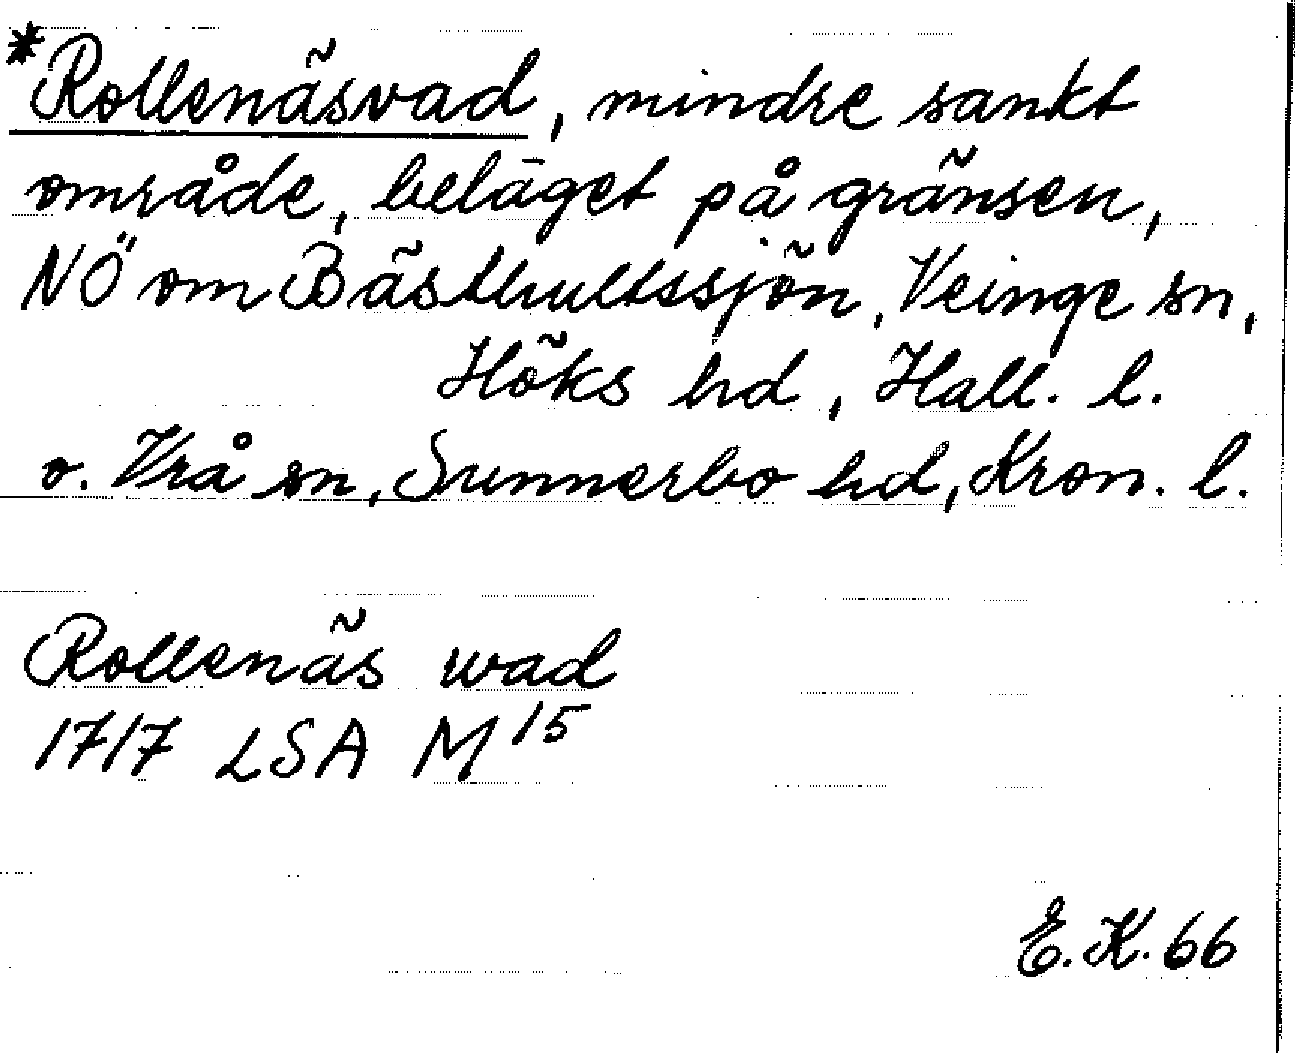 *Rollenäsvad, mindre sankt
område, beläget på gränsen,
NÖ om Bästhultssjön, Veinge sn,
Höks hd, Hall. l.
o. Vrå sn, Sunnerbo hd, Kron. l.
Rollenäs wad
1717 LSA M 15
E.K. 66